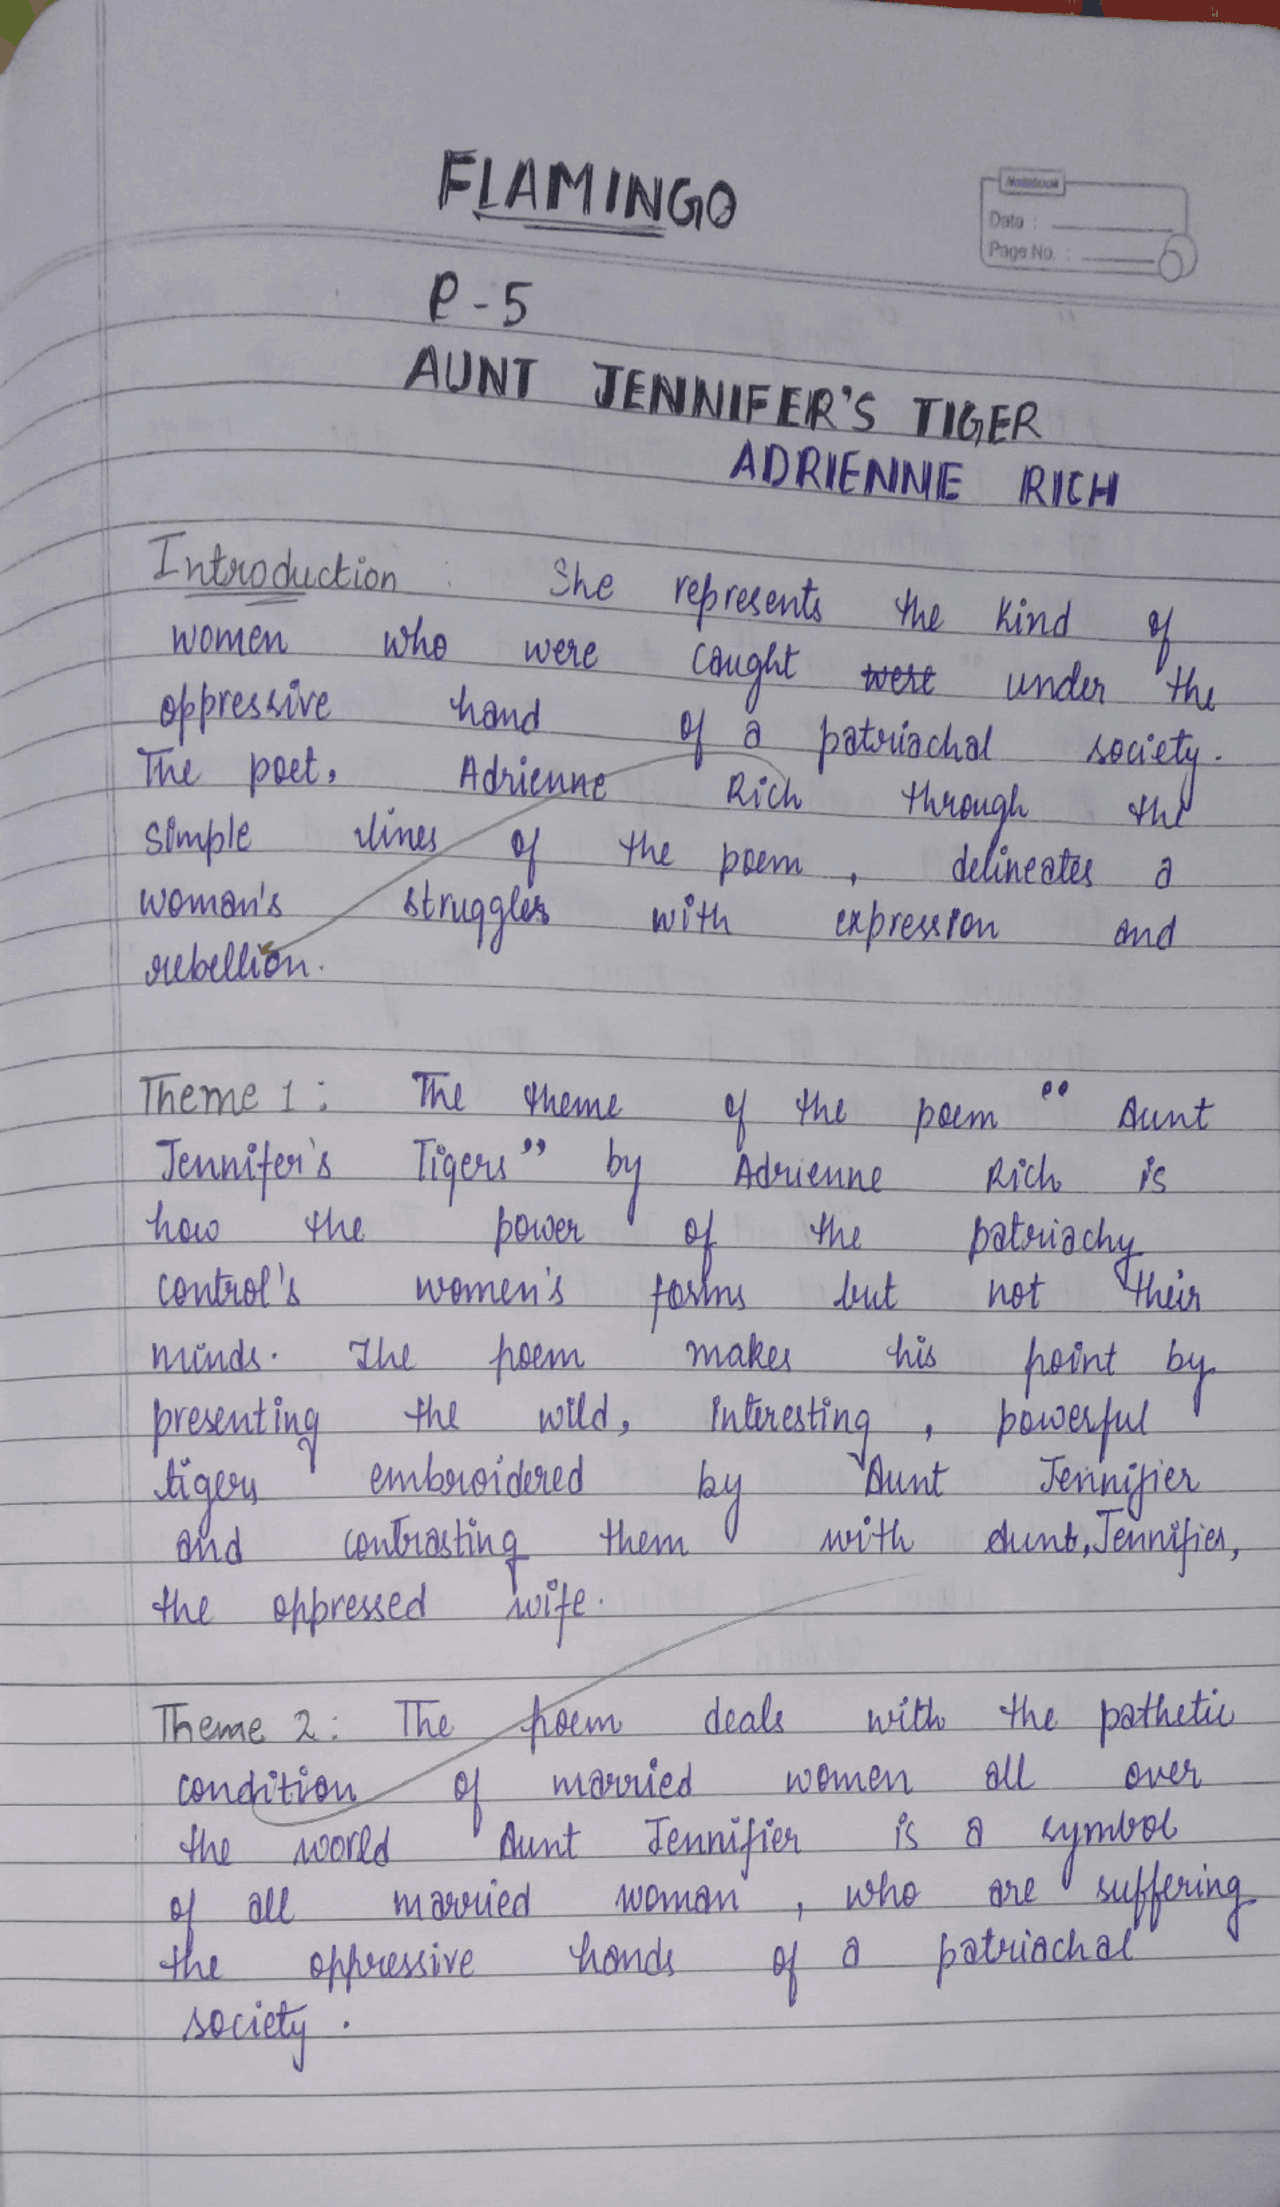 FLAMINGO
Notebook
Date :
Page No. :
P-5
AUNT JENNIFER'S TIGER
ADRIENNE RICH
Introduction : She represents the kind of
women who were caught were under the
oppressive hand of a patriachal society.
The poet, Adrienne Rich through the
simple lines of the poem, delineates a
woman's struggles with expression and
rebellion.
Theme 1 : The theme of the poem " Aunt
Jennifer's Tigers" by Adrienne Rich is
how the power of the patriachy
control's women's forms but not their
minds. The poem makes his point by
presenting the wild, interesting, powerful
tigers embroidered by Aunt Jennifier
and contrasting them with Aunt, Jennifier,
the oppressed wife.
Theme 2 : The poem deals with the pathetic
condition of married women all over
the world Aunt Jennifier is a symbol
of all married woman, who are suffering
the oppressive hands of a patriachal
society.